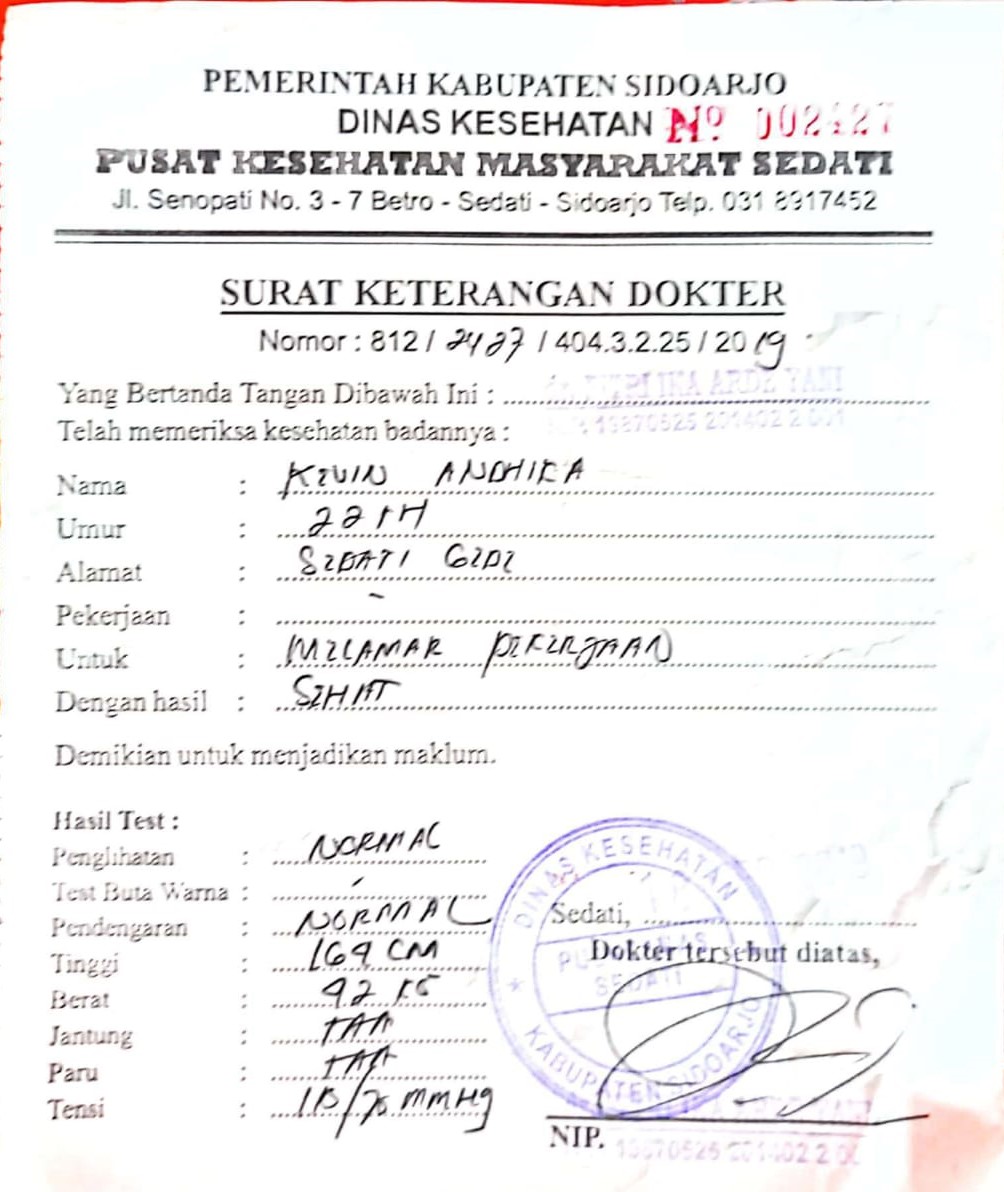 PEMERINTAH KABUPATEN SIDOARJO
DINAS KESEHATAN Nº 002427
PUSAT KESEHATAN MASYARAKAT SEDATI
Jl. Senopati No. 3 - 7 Betro - Sedati - Sidoarjo Telp. 031 8917452
SURAT KETERANGAN DOKTER
Nomor : 812 / 2427 / 404.3.2.25 / 2019
Yang Bertanda Tangan Dibawah Ini : dr. FITRI IKA ARDE YANI
19870526 201402 2 001
Telah memeriksa kesehatan badannya :
Nama : KEVIN ANDHIKA
Umur : 22 TH
Alamat : SEDATI GEDE
Pekerjaan : -
Untuk : MELAMAR PEKERJAAN
Dengan hasil : SEHAT
Demikian untuk menjadikan maklum.
Hasil Test :
Penglihatan : NORMAL
Test Buta Warna : -
Pendengaran : NORMAL
Tinggi : 169 CM
Berat : 92 KG
Jantung : TAA
Paru : TAA
Tensi : 110/70 mmHg
DINAS KESEHATAN
PUSKESMAS
SEDATI
KABUPATEN SIDOARJO
Sedati,
Dokter tersebut diatas,
NIP. 19870526 201402 2 00